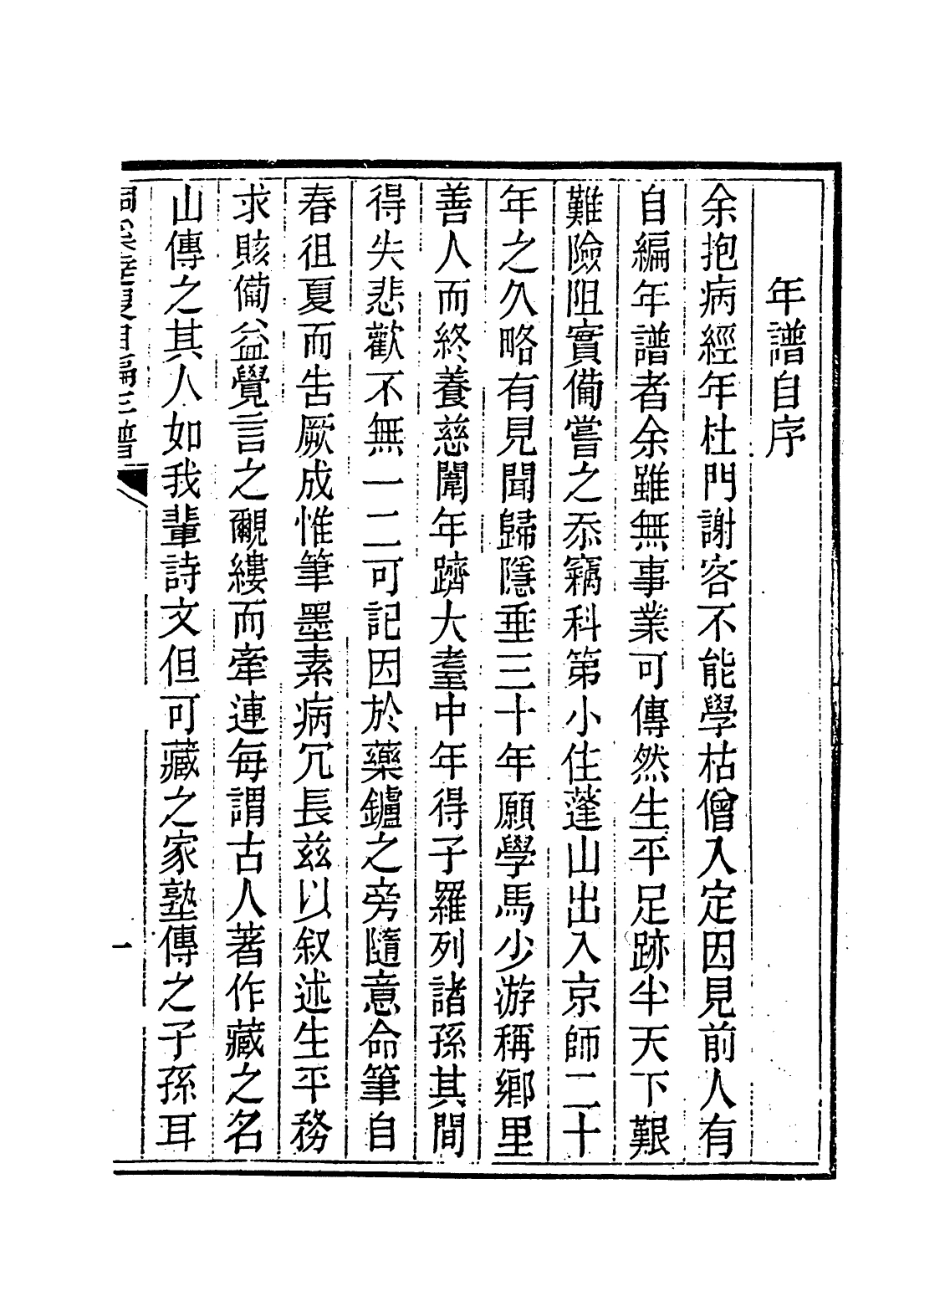 年譜自序
余抱病經年杜門謝客不能學枯僧入定因見前人有
自編年譜者余雖無事業可傳然生平足跡半天下艱
難險阻實備嘗之忝竊科第小住蓬山出入京師二十
年之久略有見聞歸隱垂三十年願學馬少游稱鄉里
善人而終養慈闈年躋大耋中年得子羅列諸孫其間
得失悲歡不無一二可記因於藥鑪之旁隨意命筆自
春徂夏而告厥成惟筆墨素病冗長茲以叙述生平務
求賅備益覺言之覼縷而牽連每謂古人著作藏之名
山傳之其人如我輩詩文但可藏之家塾傳之子孫耳
自編年譜
一